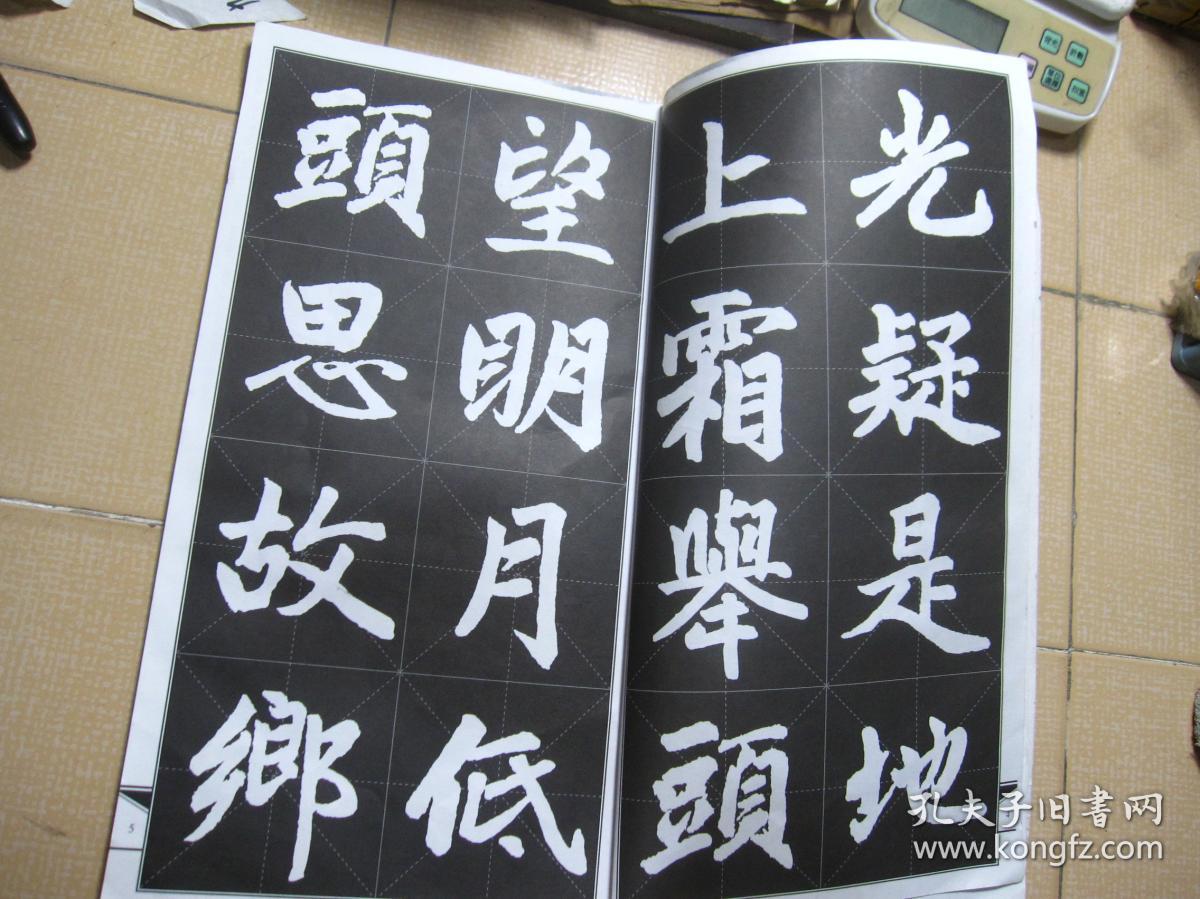 光疑是地
上霜舉頭
望明月低
頭思故鄉
5
孔夫子旧书网
www.kongfz.com